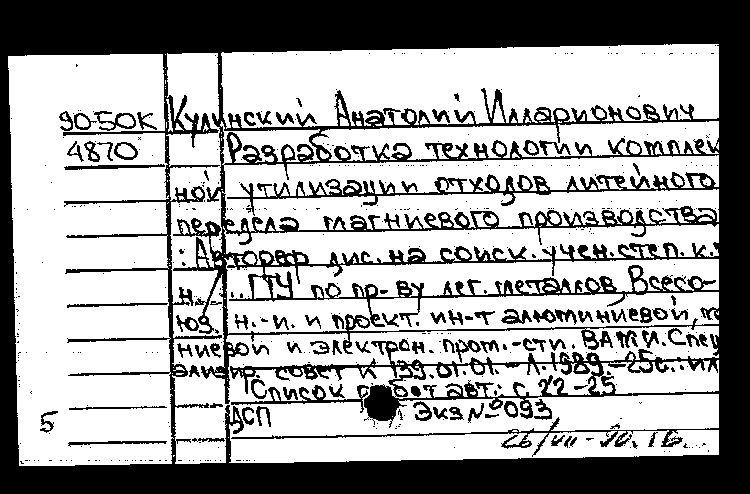 90-50К Кулинский Анатолий Илларионович
4870 Разработка технологии комплек
ной утилизации отходов литейного
передела магниевого производства
: Автореф дис. на соиск. учен. степ. к.
н. ... ГТУ по пр-ву лег. металлов, Всесо-
юз. н.-и. и проект. ин-т алюминиевой,
ниевой и электрон. пром.-сти. ВАМИ. Спец
ализир. совет К 139.01.01. - Л. 1989. - 25с. : ил
Список работ авт.: с. 22-25
ДСП Экз № 093
5
26/VII-90.